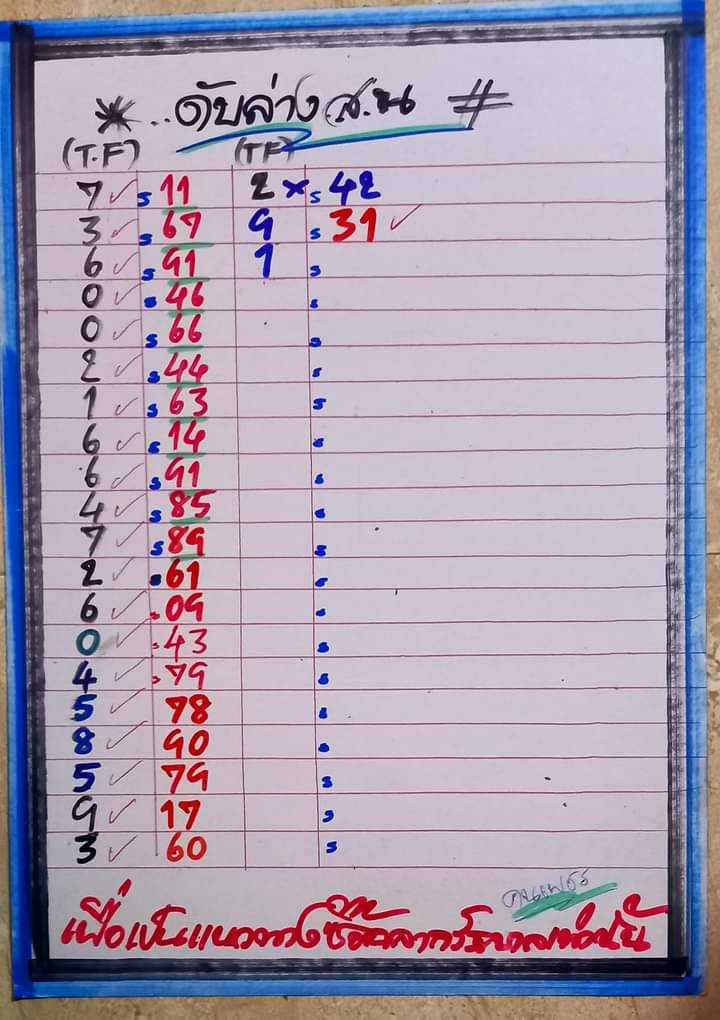 * ..ดับล่าง ส.น #
(T.F) (TF)
7 ✓ s 11 2 × s 42
3 ✓ s 67 9 s 31 ✓
6 ✓ s 91 1 s
0 ✓ s 46 s
0 ✓ s 66 s
2 ✓ s 44 s
1 ✓ s 63 s
6 ✓ s 14 s
6 ✓ s 91 s
4 ✓ s 85 s
7 ✓ s 89 s
2 ✓ . 61 s
6 ✓ . 09 s
0 ✓ . 43 s
4 ✓ . 79 s
5 ✓ 78 s
8 ✓ 90 s
5 ✓ 79 s
9 ✓ 17 s
3 ✓ 60 s
เพื่อเป็นแนวทาง